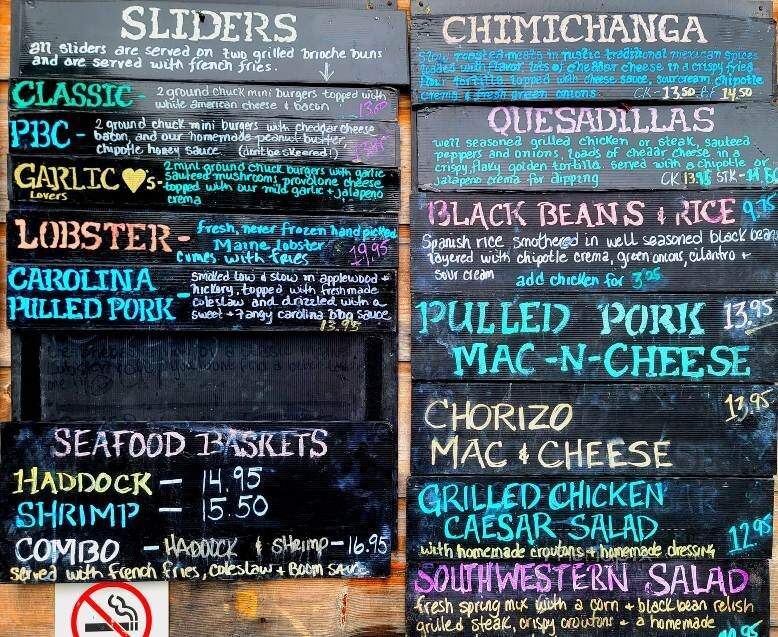 SLIDERS
all sliders are served on two grilled brioche buns
and are served with french fries.
CLASSIC - 2 ground chuck mini burgers topped with
white american cheese & bacon
PBC - 2 ground chuck mini burgers with cheddar cheese
bacon, and our homemade peanut butter,
chipotle honey sauce. (don't be skeered!)
GARLIC 's - 2 mini ground chuck burgers with garlic
Lovers sauteed mushrooms, provolone cheese
topped with our mild garlic + jalapeno
crema
LOBSTER - fresh, never frozen hand picked
Maine lobster
comes with fries 19.95
CAROLINA
PULLED PORK - Smoked low & slow in applewood +
hickory, topped with fresh made
coleslaw and drizzled with a
sweet + tangy carolina bbq sauce
13.95
SEAFOOD BASKETS
HADDOCK - 14.95
SHRIMP - 15.50
COMBO - HADDOCK & SHRIMP - 16.95
served with french fries, coleslaw + BOOM SAUCE
CHIMICHANGA
Slow roasted meats in rustic traditional mexican spices
loaded with flavor, lots of cheddar cheese in a crispy fried
flour tortilla topped with cheese sauce, sour cream, chipotle
crema & fresh green onions CK - 13.50 BF 14.50
QUESADILLAS
well seasoned grilled chicken or steak, sauteed
peppers and onions, loads of chedar cheese in a
crispy, flaky golden tortilla served with a chipotle or
jalapeno crema for dipping CK 13.95 STK - 14.50
BLACK BEANS & RICE 9.75
Spanish rice smothered in well seasoned black beans
layered with chipotle crema, green onions, cilantro +
sour cream add chicken for 3.25
PULLED PORK 13.95
MAC-N-CHEESE
CHORIZO 13.95
MAC & CHEESE
GRILLED CHICKEN
CAESAR SALAD 12.95
with homemade croutons + homemade dressing
SOUTHWESTERN SALAD
fresh spring mix with a corn + black bean relish
grilled steak, crispy croutons + a homemade